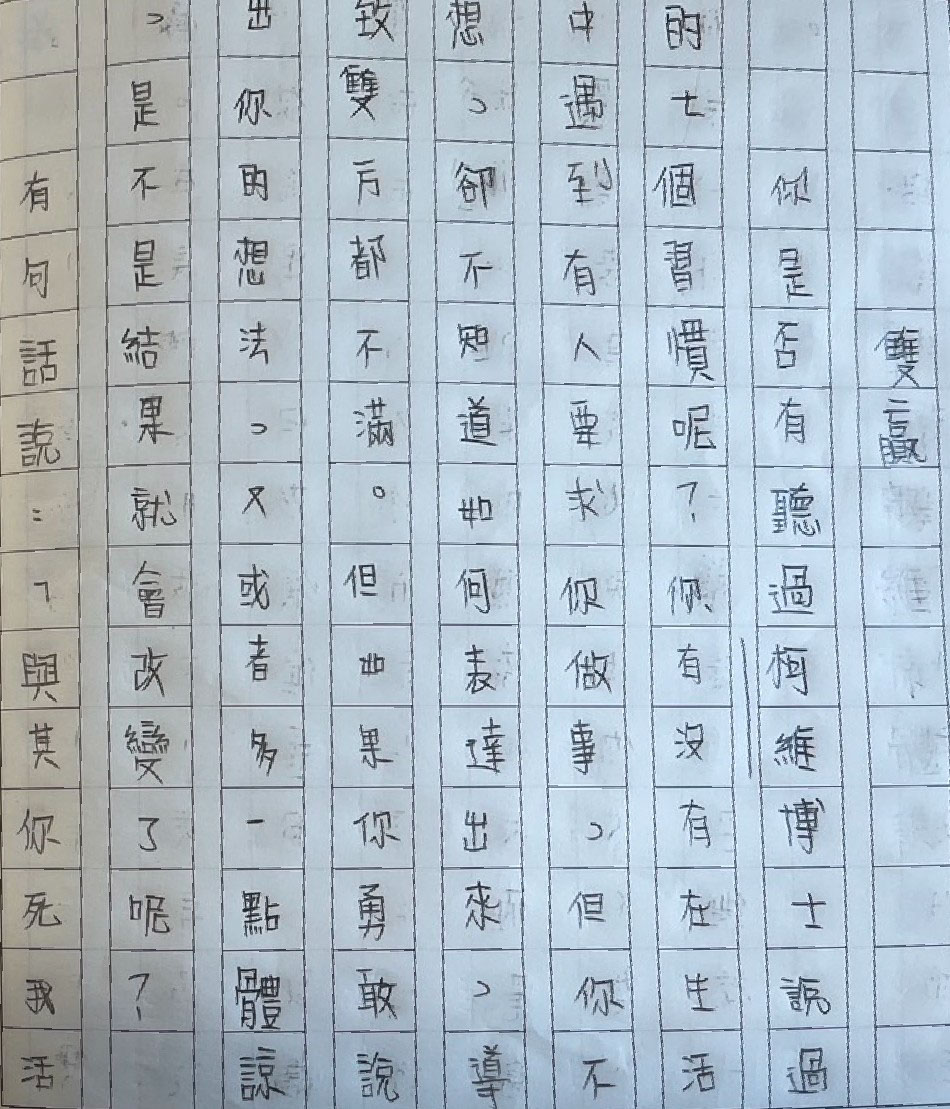 雙贏
你是否有聽過柯維博士說過
的七個習慣呢？你有沒有在生活
中遇到有人要求你做事，但你不
想，卻不知道如何表達出來，導
致雙方都不滿。但如果你勇敢說
出你的想法，又或者多一點體諒
，是不是結果就會改變了呢？
有句話說：「與其你死我活